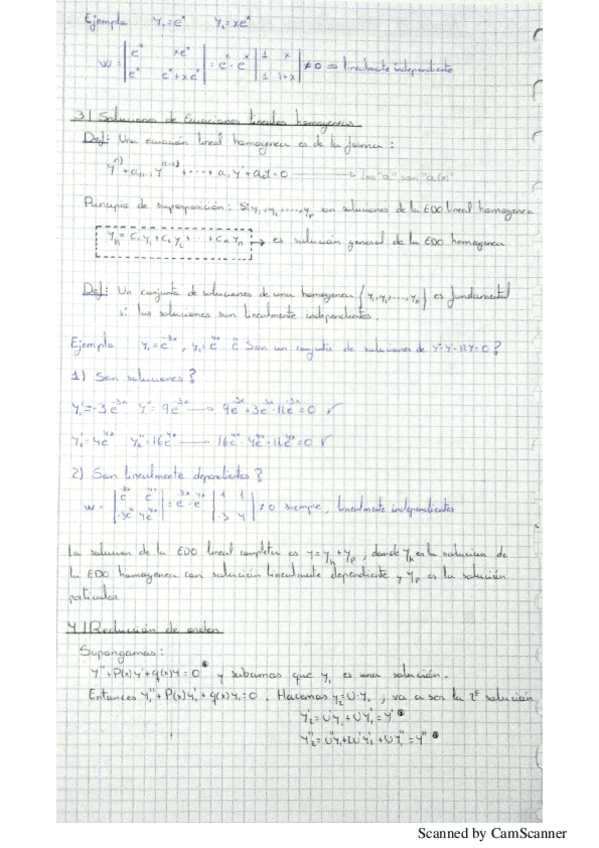 Ejemplo Y₁=eˣ Y₂=xeˣ
W= |eˣ xeˣ; eˣ eˣ+xeˣ| = eˣ·eˣ |1 x; 1 1+x| ≠0 ⇒ linealmente independiente
3| Soluciones de Ecuaciones lineales homogeneas
Def: Una ecuación lineal homogenea es de la forma:
y⁽ⁿ⁾+aₙ₋₁y⁽ⁿ⁻¹⁾+···+a₁y'+a₀y=0 → los "a" son "a(x)"
Principio de superposición: Si y₁,y₂,....,yₚ son soluciones de la EDO lineal homogenea
yₕ=C₁y₁+C₂y₂+···+Cₙyₙ → es solución general de la EDO homogenea
Def: Un conjunto de soluciones de una homogenea {y₁,y₂,...,yₙ} es fundamental
si las soluciones son linealmente independientes.
Ejemplo: y₁=e⁻³ˣ, y₂=e⁴ˣ ¿ Son un conjunto de soluciones de y''-y'-12y=0?
1) Son soluciones?
y₁'=-3e⁻³ˣ y''=9e⁻³ˣ → 9e⁻³ˣ+3e⁻³ˣ-12e⁻³ˣ=0 ✓
y₂'=4e⁴ˣ y₂''=16e⁴ˣ → 16e⁴ˣ-4e⁴ˣ-12e⁴ˣ=0 ✓
2) Son linealmente dependientes?
W= |e⁻³ˣ e⁴ˣ; -3e⁻³ˣ 4e⁴ˣ| = e⁻³ˣ·e⁴ˣ |1 1; -3 4| ≠0 siempre, linealmente independientes
La solucion de la EDO lineal completa es y=yₕ+yₚ, donde yₕ es la solucion de
la EDO homogenea con solución linealmente dependiente y yₚ es la solución
particular
4.|Reducción de orden
Supongamos:
y''+P(x)y'+q(x)y=0 y sabemos que y₁ es una solución.
Entonces y₁''+P(x)y₁'+q(x)y₁=0. Hacemos y₂=U·y₁, va a ser la 2ª solución
y₂'=U'y₁+Uy₁'=y'
y₂''=U''y₁+2U'y₁'+Uy₁''=y''
Scanned by CamScanner